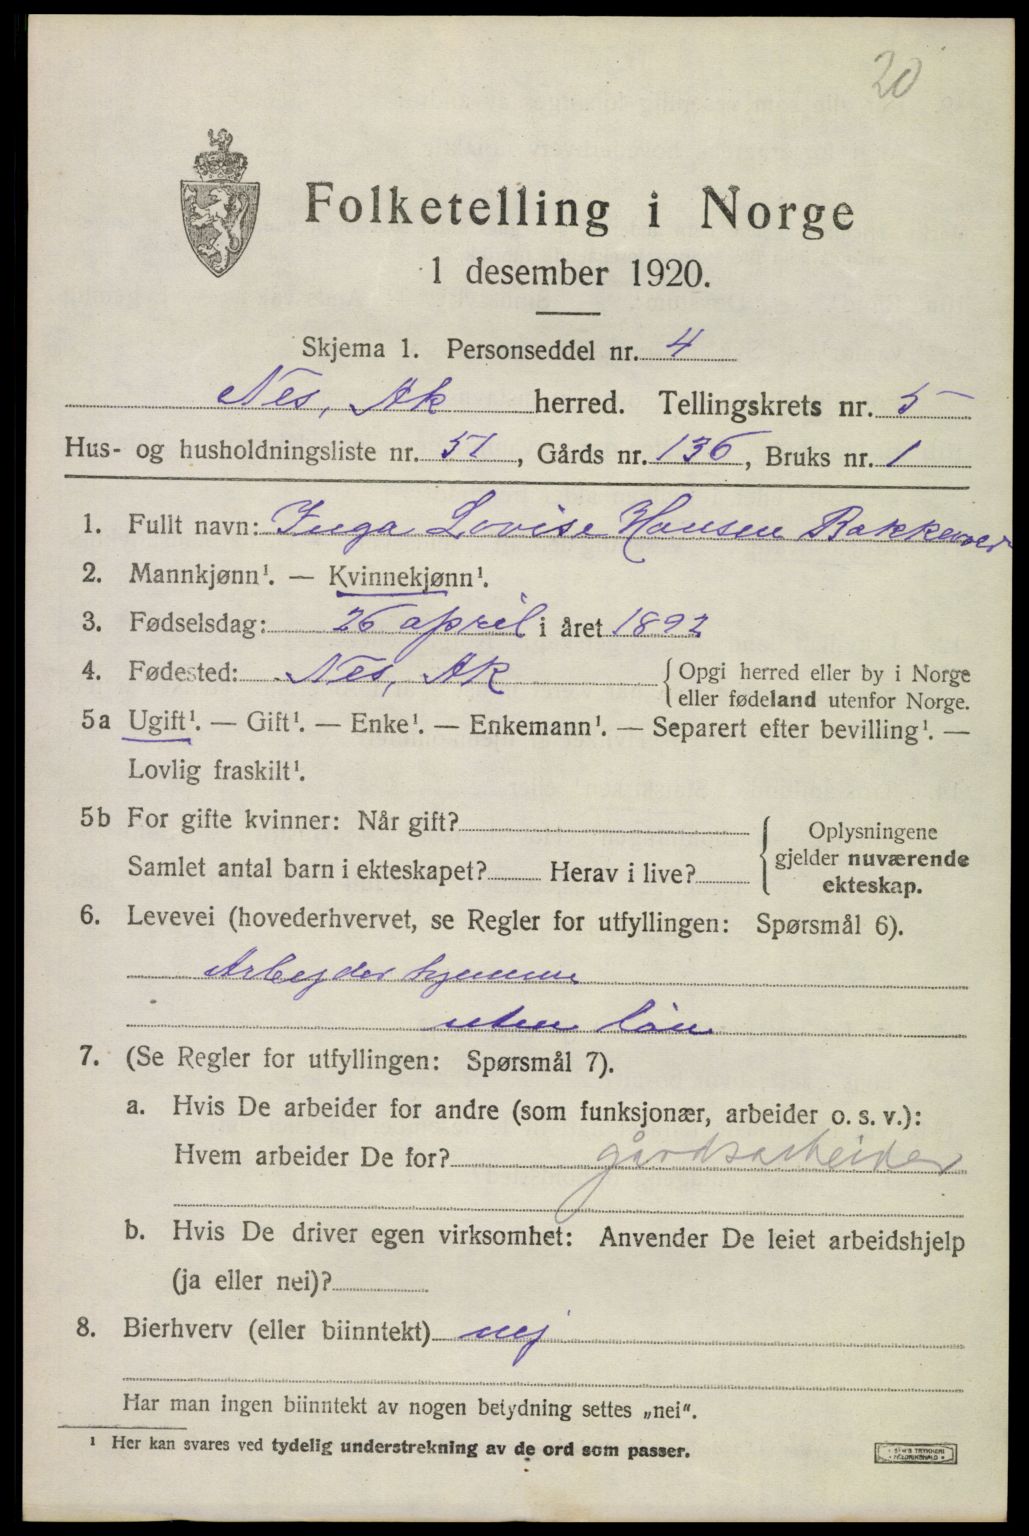 20
Folketelling i Norge
1 desember 1920.
Skjema 1. Personseddel nr. 4
Nes, Ak herred. Tellingskrets nr. 5
Hus- og husholdningsliste nr. 51, Gårds nr. 136, Bruks nr. 1
1. Fullt navn: Inga Lovise Hansen Bakkevold
2. Mannkjønn¹. — Kvinnekjønn¹.
3. Fødselsdag: 26 april i året 1892
4. Fødested: Nes, Ak { Opgi herred eller by i Norge
eller fødeland utenfor Norge.
5a Ugift¹. — Gift¹. — Enke¹. — Enkemann¹. — Separert efter bevilling¹. —
Lovlig fraskilt¹.
5b For gifte kvinner: Når gift?
Samlet antal barn i ekteskapet? Herav i live?
Oplysningene
gjelder nuværende
ekteskap.
6. Levevei (hovederhvervet, se Regler for utfyllingen: Spørsmål 6).
Arbejder hjemme
uten løn
7. (Se Regler for utfyllingen: Spørsmål 7).
a. Hvis De arbeider for andre (som funksjonær, arbeider o. s. v.):
Hvem arbeider De for? gårdsarbeider
b. Hvis De driver egen virksomhet: Anvender De leiet arbeidshjelp
(ja eller nei)?
8. Bierhverv (eller biinntekt) nej
Har man ingen biinntekt av nogen betydning settes „nei".
¹ Her kan svares ved tydelig understrekning av de ord som passer.